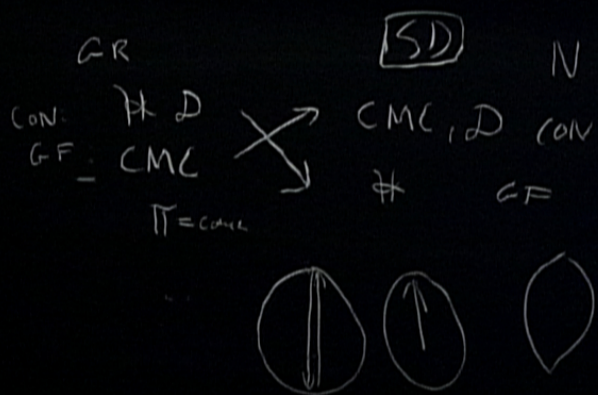 GR SD N
CON: H D CMC, D CON
GF: CMC H GF
π =